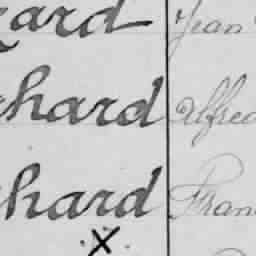 zard Jean
chard Alfred
chard Fran
X